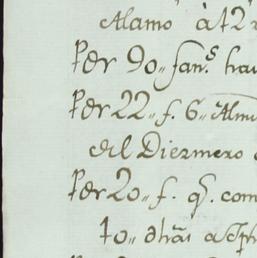 Alamo à 12 r
Per 90,, fan.s hav
Per 22,, f. 6,, Almu
del Diezmero
Per 20,, f. q.e com
10,, dhãs a Jph